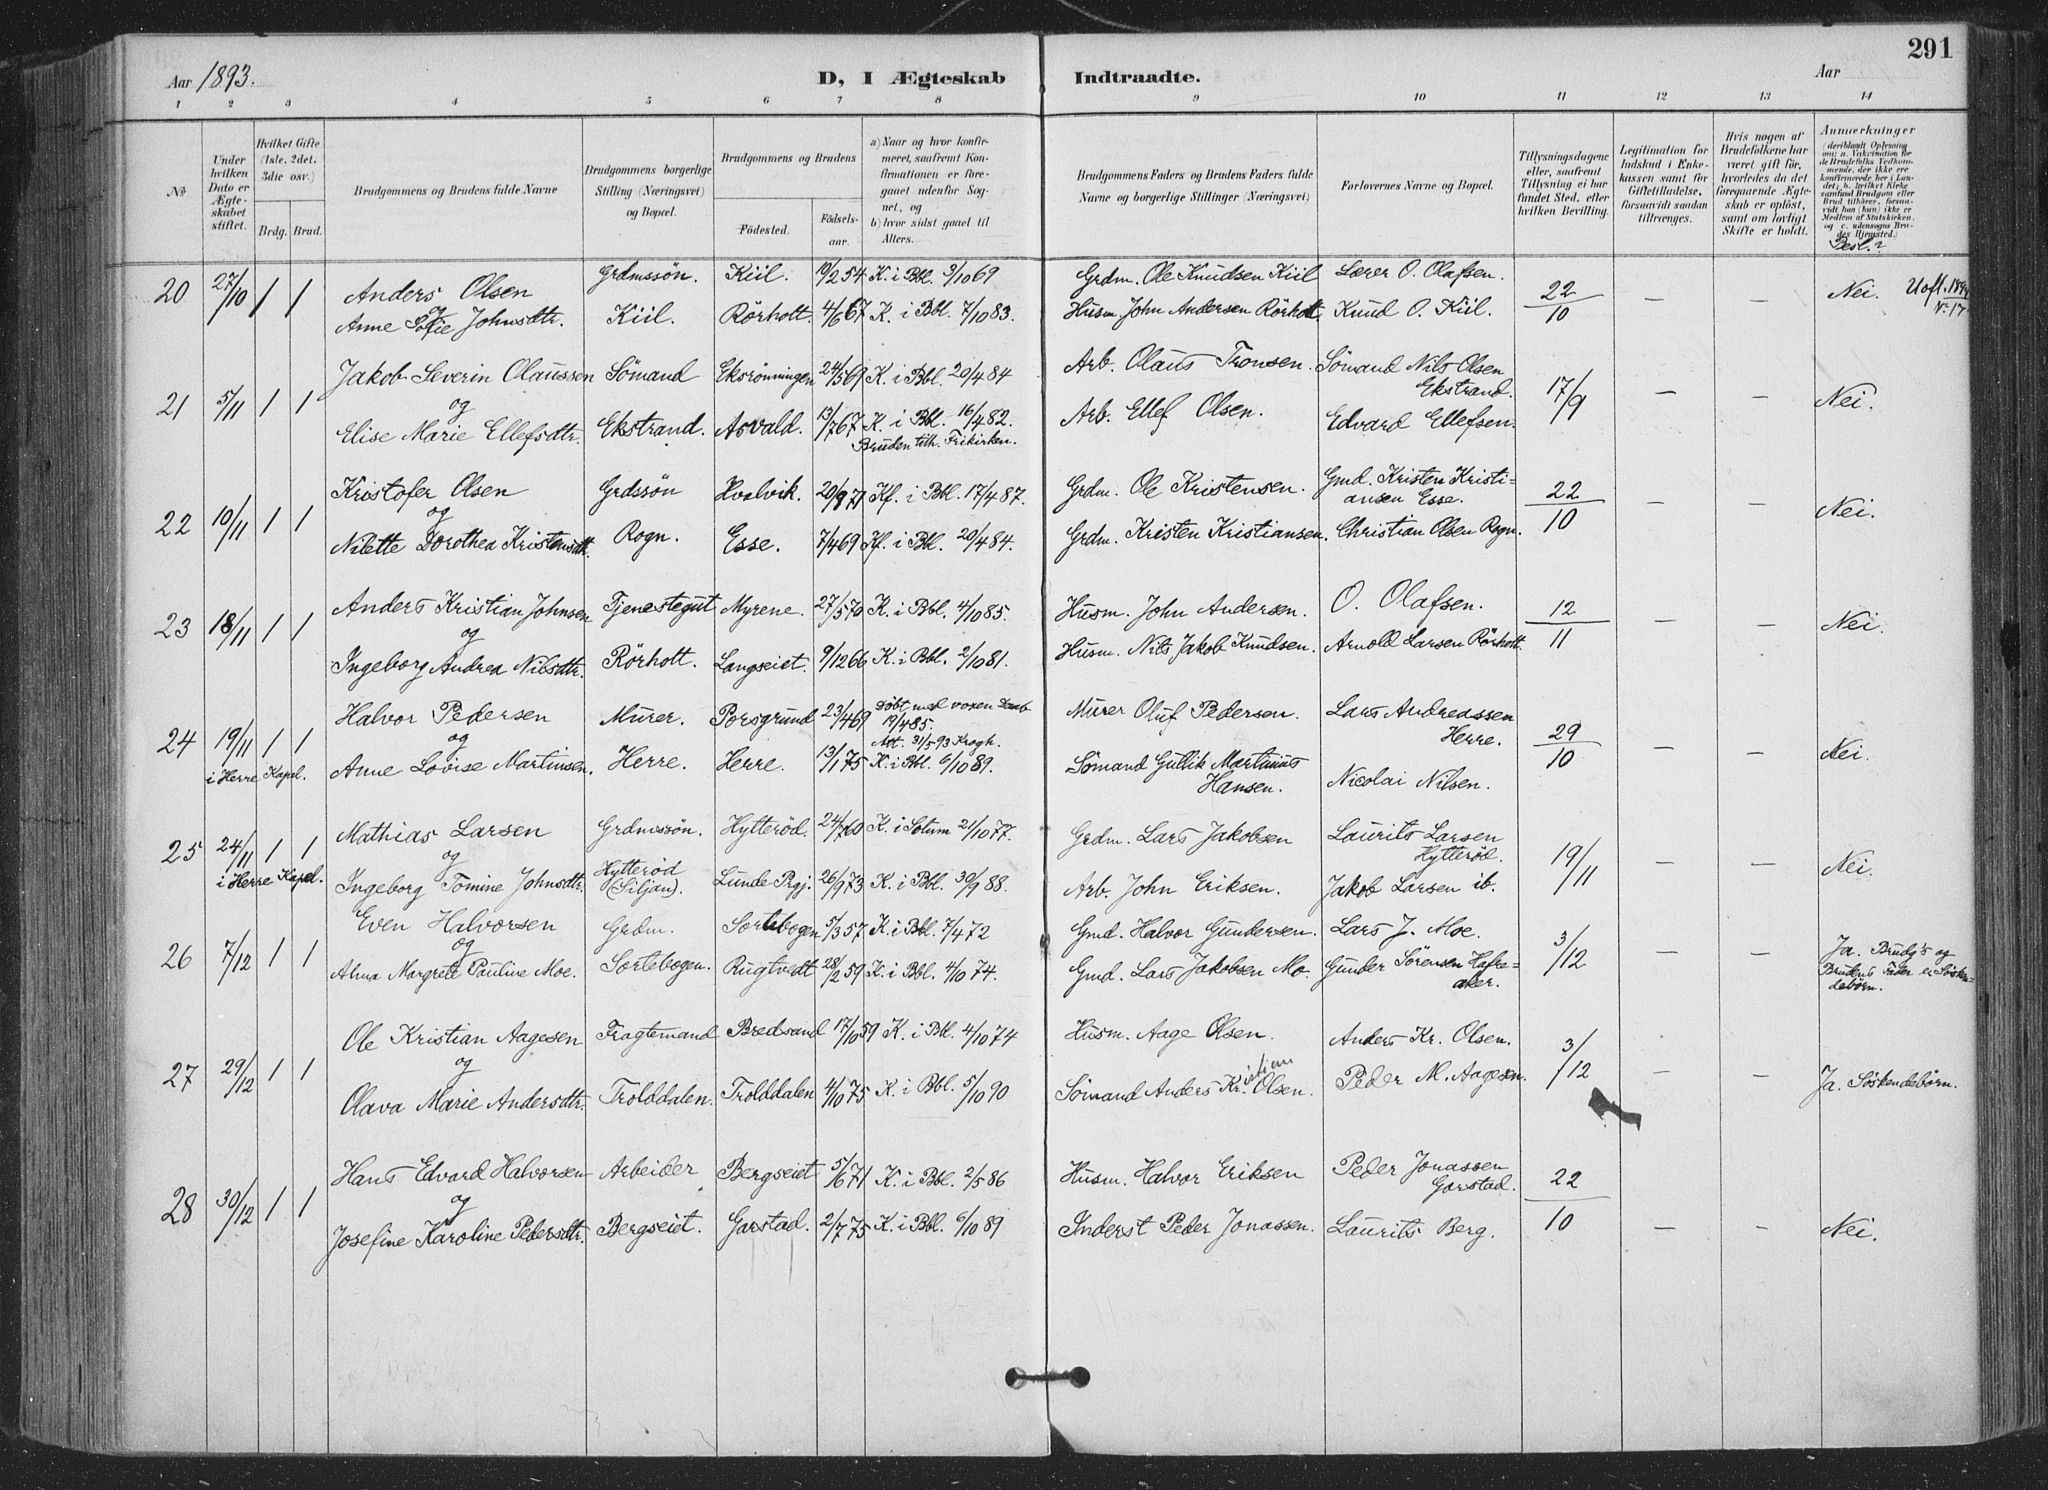 291
Aar 1893.
D, I Ægteskab Indtraadte.
Aar
1 2 3 4 5 6 7 8 9 10 11 12 13 14
No.
Under hvilken Dato er Ægteskabet stiftet.
Hvilket Gifte (1ste, 2det, 3die osv.)
Brdg. Brud.
Brudgommens og Brudens fulde Navne
Brudgommens borgerlige Stilling (Næringsvei) og Bopæl.
Brudgommens og Brudens
Födested. Födsels-aar.
a) Naar og hvor konfirmeret, saafremt Konfirmationen er foregaaet udenfor Sognet, og
b) hvor sidst gaaet til Alters.
Brudgommens Faders og Brudens Faders fulde Navne og borgerlige Stillinger (Næringsvei)
Forlovernes Navne og Bopæl.
Tillysningsdagene eller, saafremt Tillysning ei har fundet Sted, efter hvilken Bevilling.
Legitimation for Indskud i Enkekassen samt for Giftetilladelse, forsaavidt saadan tiltrænges.
Hvis nogen af Brudefolkene har været gift før, hvorledes da det foregaaende Ægteskab er opløst, samt om lovligt Skifte er holdt.
Anmerkninger
Besl.?
20 27/10 1 1 Anders Olsen Grdmssön. Kiil. 19/2 54 K. i Bbl. 3/10 69 Grdm. Ole Knudsen Kiil Lærer O. Olafsen. 22/10 — — Nei. Uoft. 1894 No. 17
og
Anne Sofie Johnsdtr. Kiil. Rörholt. 4/6 67 K. i Bbl. 7/10 83. Husm. John Andersen Rörholt. Knud O. Kiil.
21 5/11 1 1 Jakob Severin Olaussen Sömand Eksrönningen 24/5 69 K. i Bbl. 20/4 84 Arb. Olaus Tronsen. Sömand Nils Olsen Ekstrand. 17/9 — — Nei.
og
Elise Marie Ellefsdtr. Ekstrand. Asvald. 13/7 67 K. i Bbl. 16/4 82. Arb. Ellef Olsen. Edvard Ellefsen.
Bruden tilh. Frikirken.
22 10/11 1 1 Kristofer Olsen Grdssön Hvalvik. 20/8 71 Kf. i Bbl. 17/4 87. Grdm. Ole Kristensen. Gmd. Kristen Kristiansen Esse. 22/10 — — Nei.
og
Nilette Dorothea Kristensdtr. Rogn. Esse. 7/4 69 Kf. i Bbl. 20/4 84. Grdm. Kristen Kristiansen. Christian Olsen Rogn.
23 18/11 1 1 Anders Kristian Johnsen Tjenestegut Myrene. 27/5 70 K. i Bbl. 4/10 85. Husm. John Andersen. O. Olafsen. 12/11 — — Nei.
og
Ingeborg Andrea Nilsdtr. Rörholt. Langseiet. 9/12 66 K. i Bbl. 2/10 81. Husm. Nils Jakob Knudsen. Arnold Larsen Rörholt.
24 19/11 1 1 Halvor Pedersen Murer. Porsgrund 23/4 69 Døbt med voxen Daab 19/4 85. Att. 31/5 93 Krogh. Murer Oluf Pedersen. Lars Andreassen Herre. 29/10 — — Nei.
og
i Herre Kapel. Anne Lovise Martinsen. Herre. Herre. 13/1 75 K. i Bbl. 6/10 89. Sömand Gullik Martinus Hansen. Nicolai Nilsen.
25 24/11 1 1 Mathias Larsen Grdmssön. Hytteröd. 24/7 60 K. i Solum 21/10 77. Grdm. Lars Jakobsen Laurits Larsen Hytteröd. 19/11 — — Nei.
og
i Herre Kapel. Ingeborg Tomine Johnsdtr. Hytteröd (Siljan). Lunde Prgj. 26/9 73 K. i Bbl. 30/9 88. Arb. John Eriksen. Jakob Larsen ib.
26 7/12 1 1 Even Halvorsen Grdm. Sortebogen 5/3 57 K. i Bbl. 7/4 72 Gmd. Halvor Gundersen. Lars J. Moe. 3/12 — — Ja. Brudg's og Brudens Fader er Søskendebörn.
og
Alma Margrete Pauline Moe. Sortebogen. Rugtvedt 28/2 59 K. i Bbl. 4/10 74. Gmd. Lars Jakobsen Mo. Gunder Sörensen Hafreaker.
27 29/12 1 1 Ole Kristian Aagesen Fragtemand Bredsand 17/10 59 K. i Bbl. 4/10 74 Husm. Aage Olsen. Anders Kr. Olsen. 3/12 — — Ja. Söskendebörn.
og
Olava Marie Andersdtr. Trolddalen. Trolddalen 4/10 75 K. i Bbl. 5/10 90 Sömand Anders Kristian Olsen. Peder M. Aagesen.
28 30/12 1 1 Hans Edvard Halvorsen Arbeider Bergseiet 5/6 71 K. i Bbl. 2/5 86 Husm. Halvor Eriksen Peder Jonassen Gorstad. 22/10 — — Nei.
og
Josefine Karoline Pedersdtr. Bergseiet. Gorstad. 2/7 75 K. i Bbl. 6/10 89 Inderst Peder Jonassen. Laurits Berg.